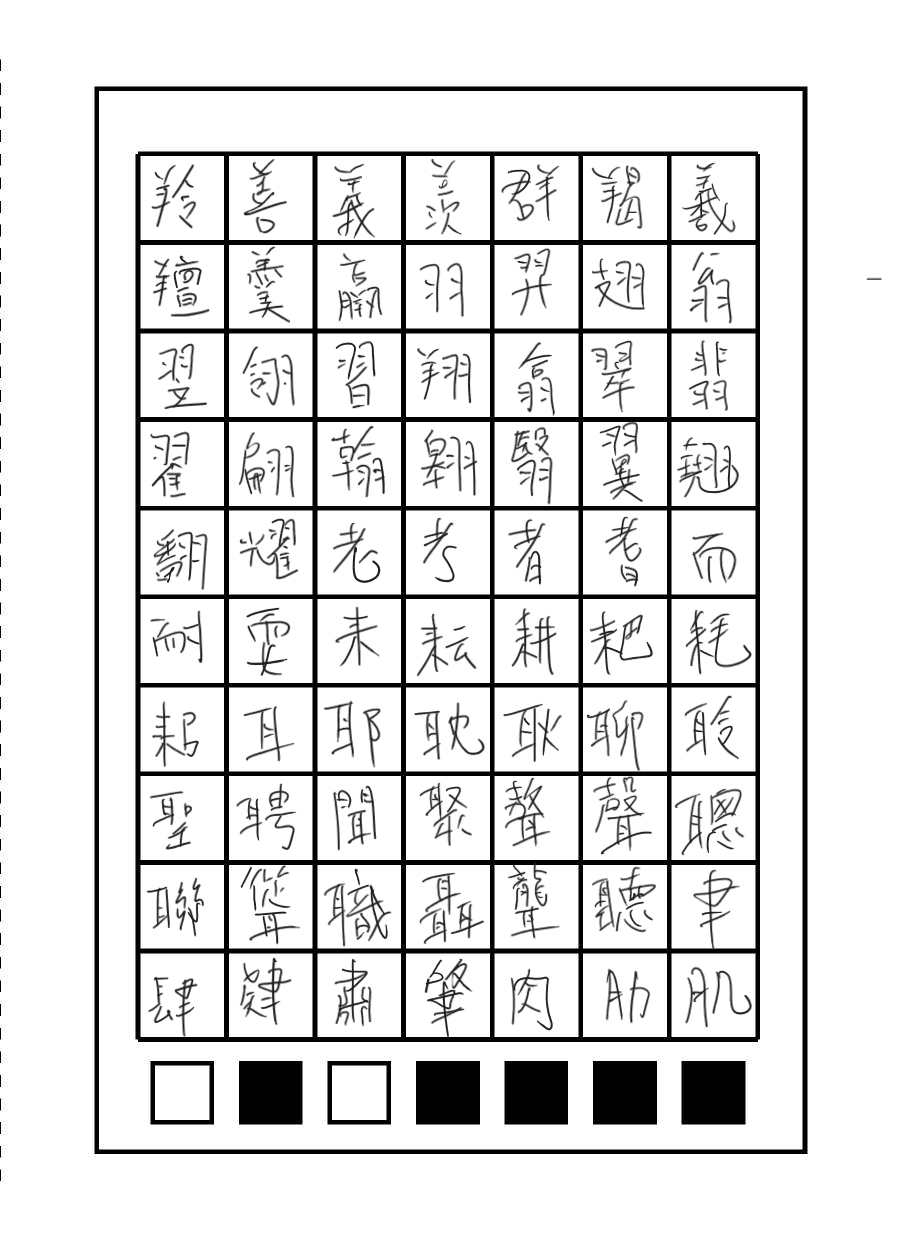 羚善義羨群羯羲
羶羹羸羽羿翅翁
翌翎習翔翕翠翡
翟翩翰翱翳翼翹
翻耀老考者耆而
耐耍耒耘耕耙耗
耜耳耶耽耿聊聆
聖聘聞聚聱聲聰
聯聳職聶聾聽聿
肆肄肅肇肉肋肌